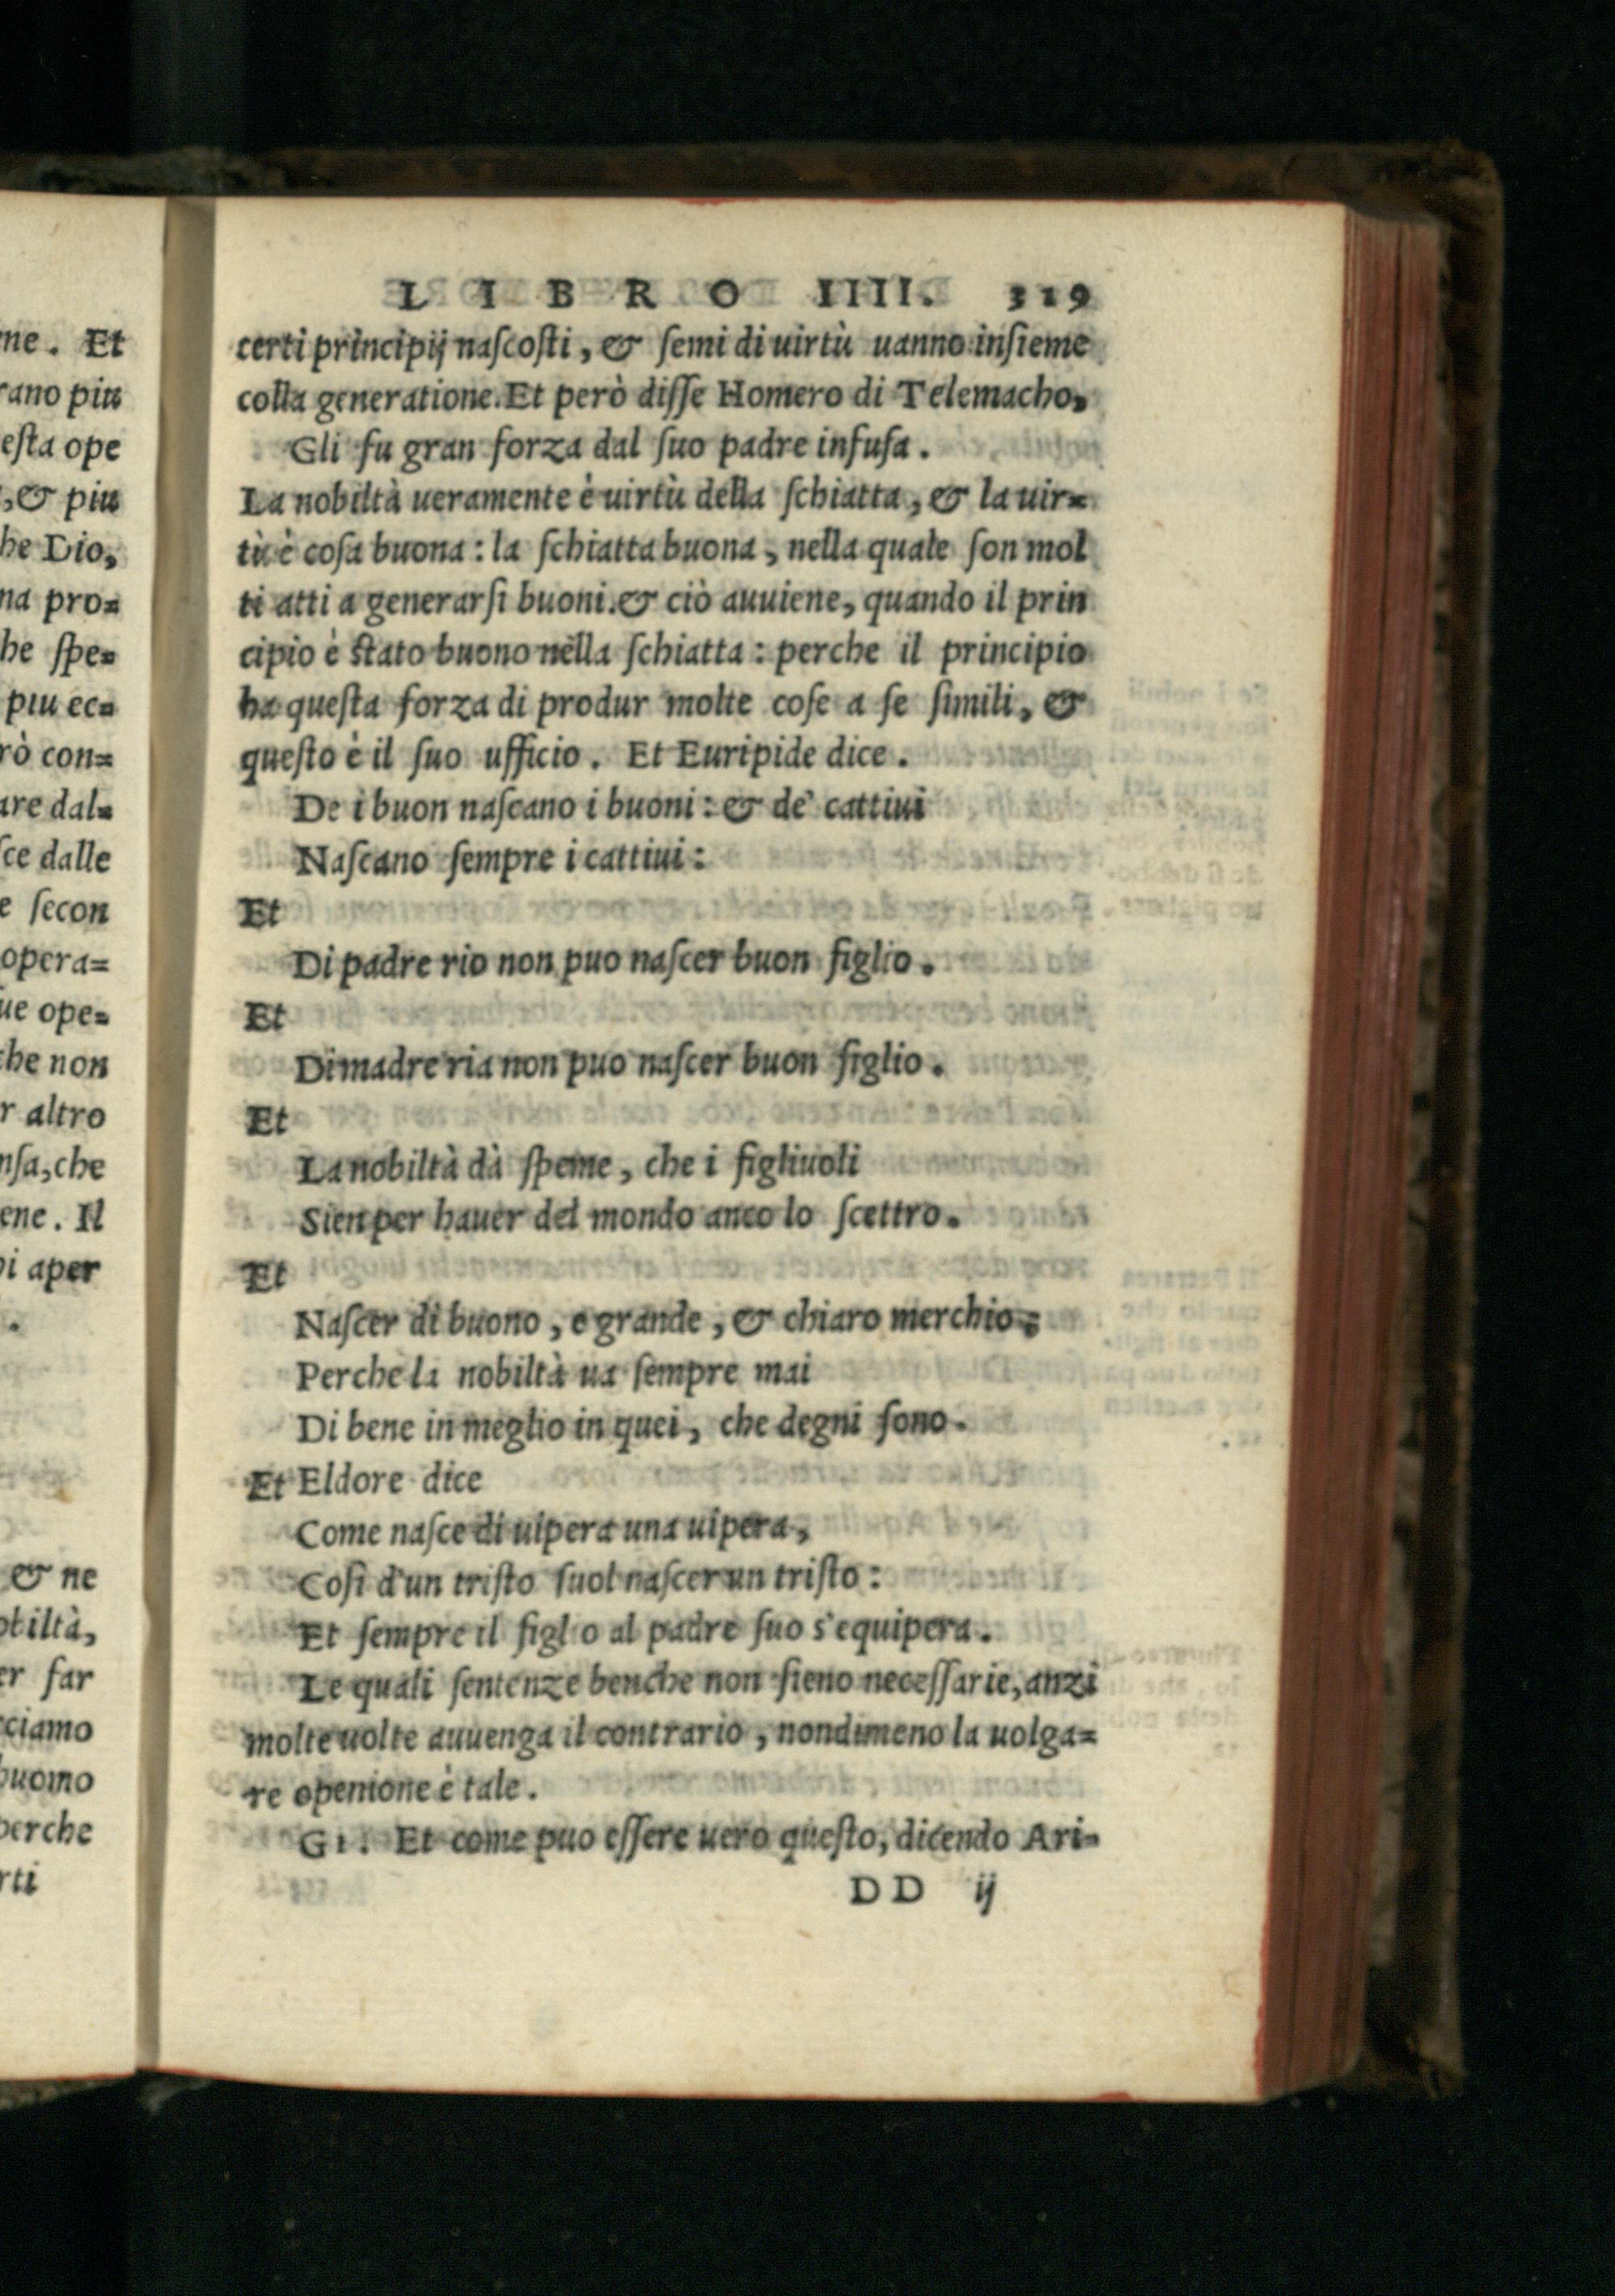 ne. Et
rano piu
esta ope
, & piu
he Dio,
na pro=
he ſpe=
piu ec=
rò con=
are dal=
ſce dalle
e ſecon
opera=
ue ope=
che non
r altro
nſa, che
ene. Il
pi aper
.
& ne
obiltà,
er far
cciamo
huomo
perche
rti
LIBRO IIII. 319
certi principij naſcoſti, & ſemi di uirtù uanno inſieme
colla generatione. Et però diſſe Homero di Telemacho,
Gli fu gran forza dal ſuo padre infuſa.
La nobiltà ueramente è uirtù della ſchiatta, & la uir=
tù è coſa buona: la ſchiatta buona, nella quale ſon mol
ti atti a generarſi buoni. & ciò auuiene, quando il prin
cipio è ſtato buono nella ſchiatta: perche il principio
ha queſta forza di produr molte coſe a ſe ſimili, &
queſto è il ſuo ufficio. Et Euripide dice.
De i buon naſcano i buoni: & de' cattiui
Naſcano ſempre i cattiui:
Et
Di padre rio non puo naſcer buon figlio.
Et
Di madre ria non puo naſcer buon figlio.
Et
La nobiltà dà ſpeme, che i figliuoli
Sien per hauer del mondo anco lo ſcettro.
Et
Naſcer di buono, e grande, & chiaro merchio;
Perche la nobiltà ua ſempre mai
Di bene in meglio in quei, che degni ſono.
Et Eldore dice
Come naſce di uipera una uipera,
Coſi d'un triſto ſuol naſcer un triſto:
Et ſempre il figlio al padre ſuo s'equipera.
Le quali ſentenze benche non ſieno neceſſarie, anzi
molte uolte auuenga il contrario, nondimeno la uolga=
re openione è tale.
GI. Et come puo eſſere uero queſto, dicendo Ari=
DD ij